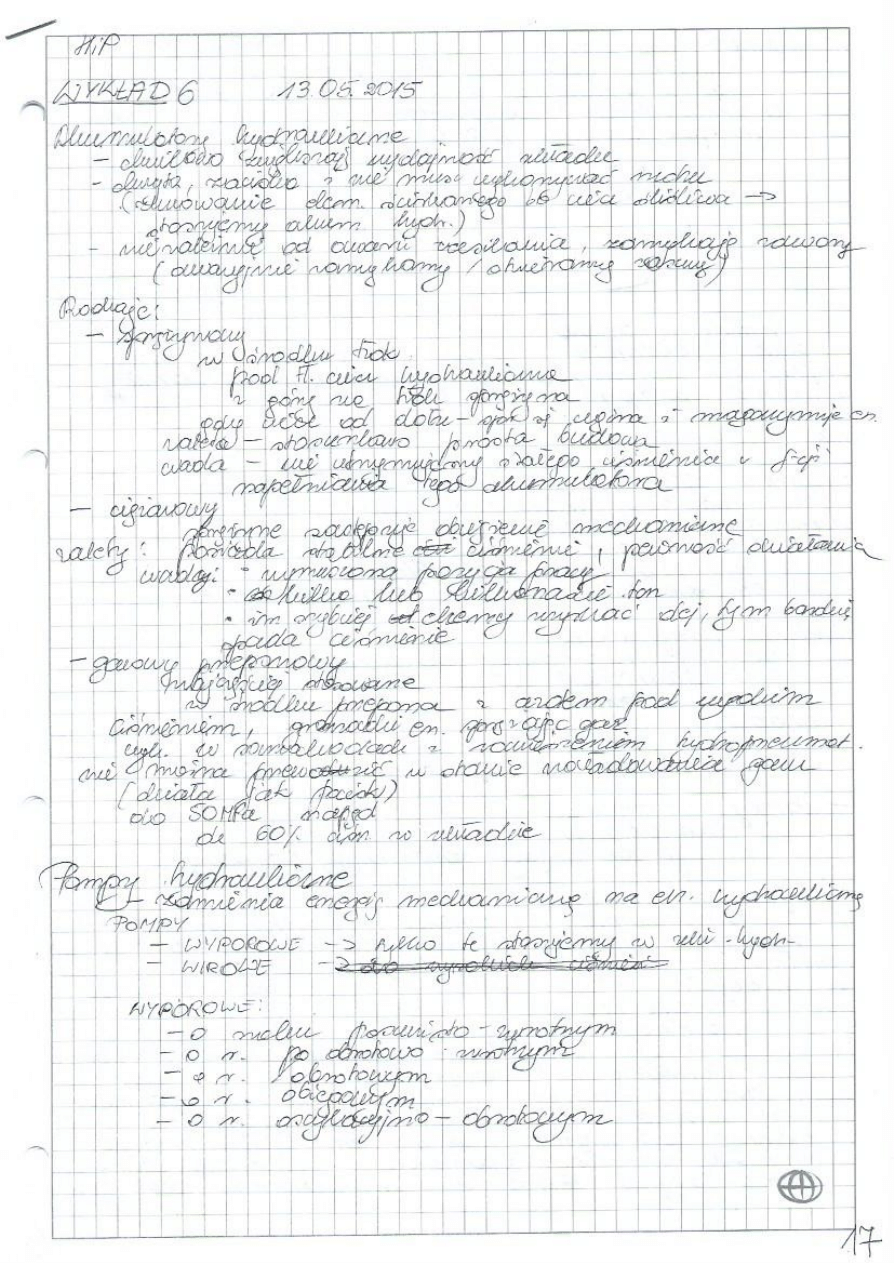 HiP
WYKŁAD 6 13.05.2015
Akumulatory hydrauliczne
- chwilowo zwiększają wydajność układu
- chwyta, zaciska i nie musi wykonywać ruchu
elem. ściskanego bo ciecz ->
stosujemy akum. hydr.)
- niezależnie od awarii zasilania, zamykają zawory
(awaryjnie zamykamy / otwieramy zawory)
Rodzaje:
- sprężynowy
w środku tłok
pod tł. ciecz hydrauliczna
z góry na tłok sprężyna
gdy ciecz od dołu - spr. się ugina i magazynuje en.
zaleta - stosunkowo prosta budowa
wada - nie utrzymujemy stałego ciśnienia w f-cji
napełniania tego akumulatora
- ciężarowy
sprężynę zastępuje obciążenie mechaniczne
zalety: posiada stabilne ciśnienie, pewność działania
wady: - wymuszona pozycja pracy
• kilka lub kilkanaście ton
• im szybciej chcemy uzyskać olej, tym bardziej
spada ciśnienie
- gazowy przeponowy
najczęściej stosowane
w środku przepona z azotem pod wysokim
ciśnieniem, gromadzi en. sprężając gaz
w samochodach z zawieszeniem hydropneumat.
nie można przewozić w stanie naładowania gazu
(działa jak pocisk)
do 50MPa
do 60% ciśn. w układzie
Pompy hydrauliczne
- zamienia energię mechaniczną na en. hydrauliczną
POMPY
- WYPOROWE -> tylko te stosujemy w ukł. hydr.
- WIROWE -> do wysokich ciśnień
WYPOROWE:
- o ruchu posuwisto-zwrotnym
- o r. obrotowo-zwrotnym
- o r. obrotowym
- o r. obiegowym
- o r. oscylacyjno-obrotowym
17